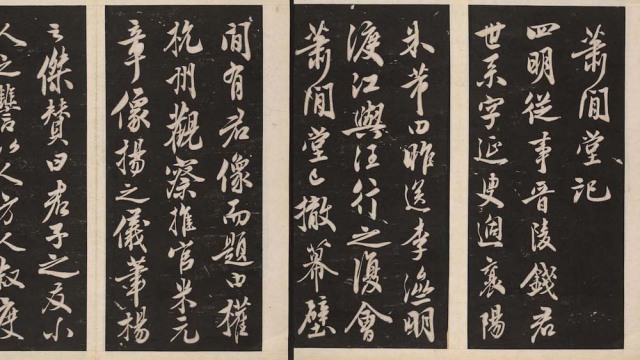 萧閒堂記
四明從事晉陵錢君
世京字延叟過襄陽
米芾曰昨送李濟明
渡江與汪行之復會
萧閒堂已撤幕壁
間有君像而題曰權
杭州觀察推官米元
章像揚之儀筆楊
之傑赞曰君子之交小
人之讐以人方人叔度